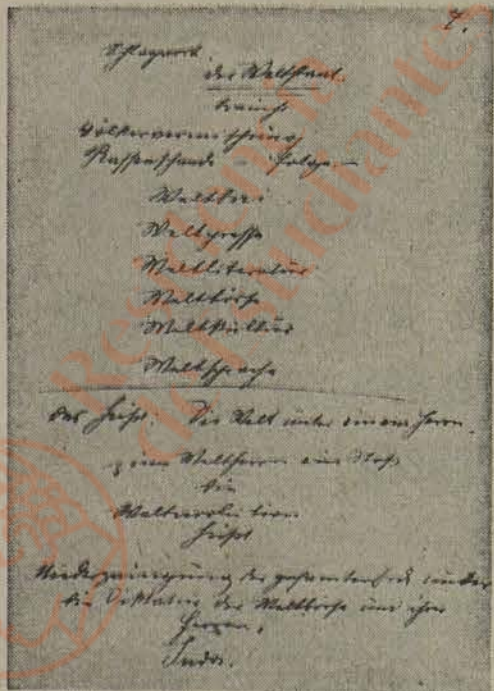 7.
Schlagwort
der Weltstaat.
Völkervermischung
Rassenschande – Folge –
Weltbrei
Weltpresse
Weltliteratur
Weltbörse
Weltkultur
Weltsprache
das heißt: Die Welt unter einem Herrn.
zum Weltherrn ein
die
Weltrevolution
heißt
Niederzwingung der gesamten Erde unter
die Diktatur der Weltbörse und ihrer
Herren,
Juda.
Residencia
de Estudiantes